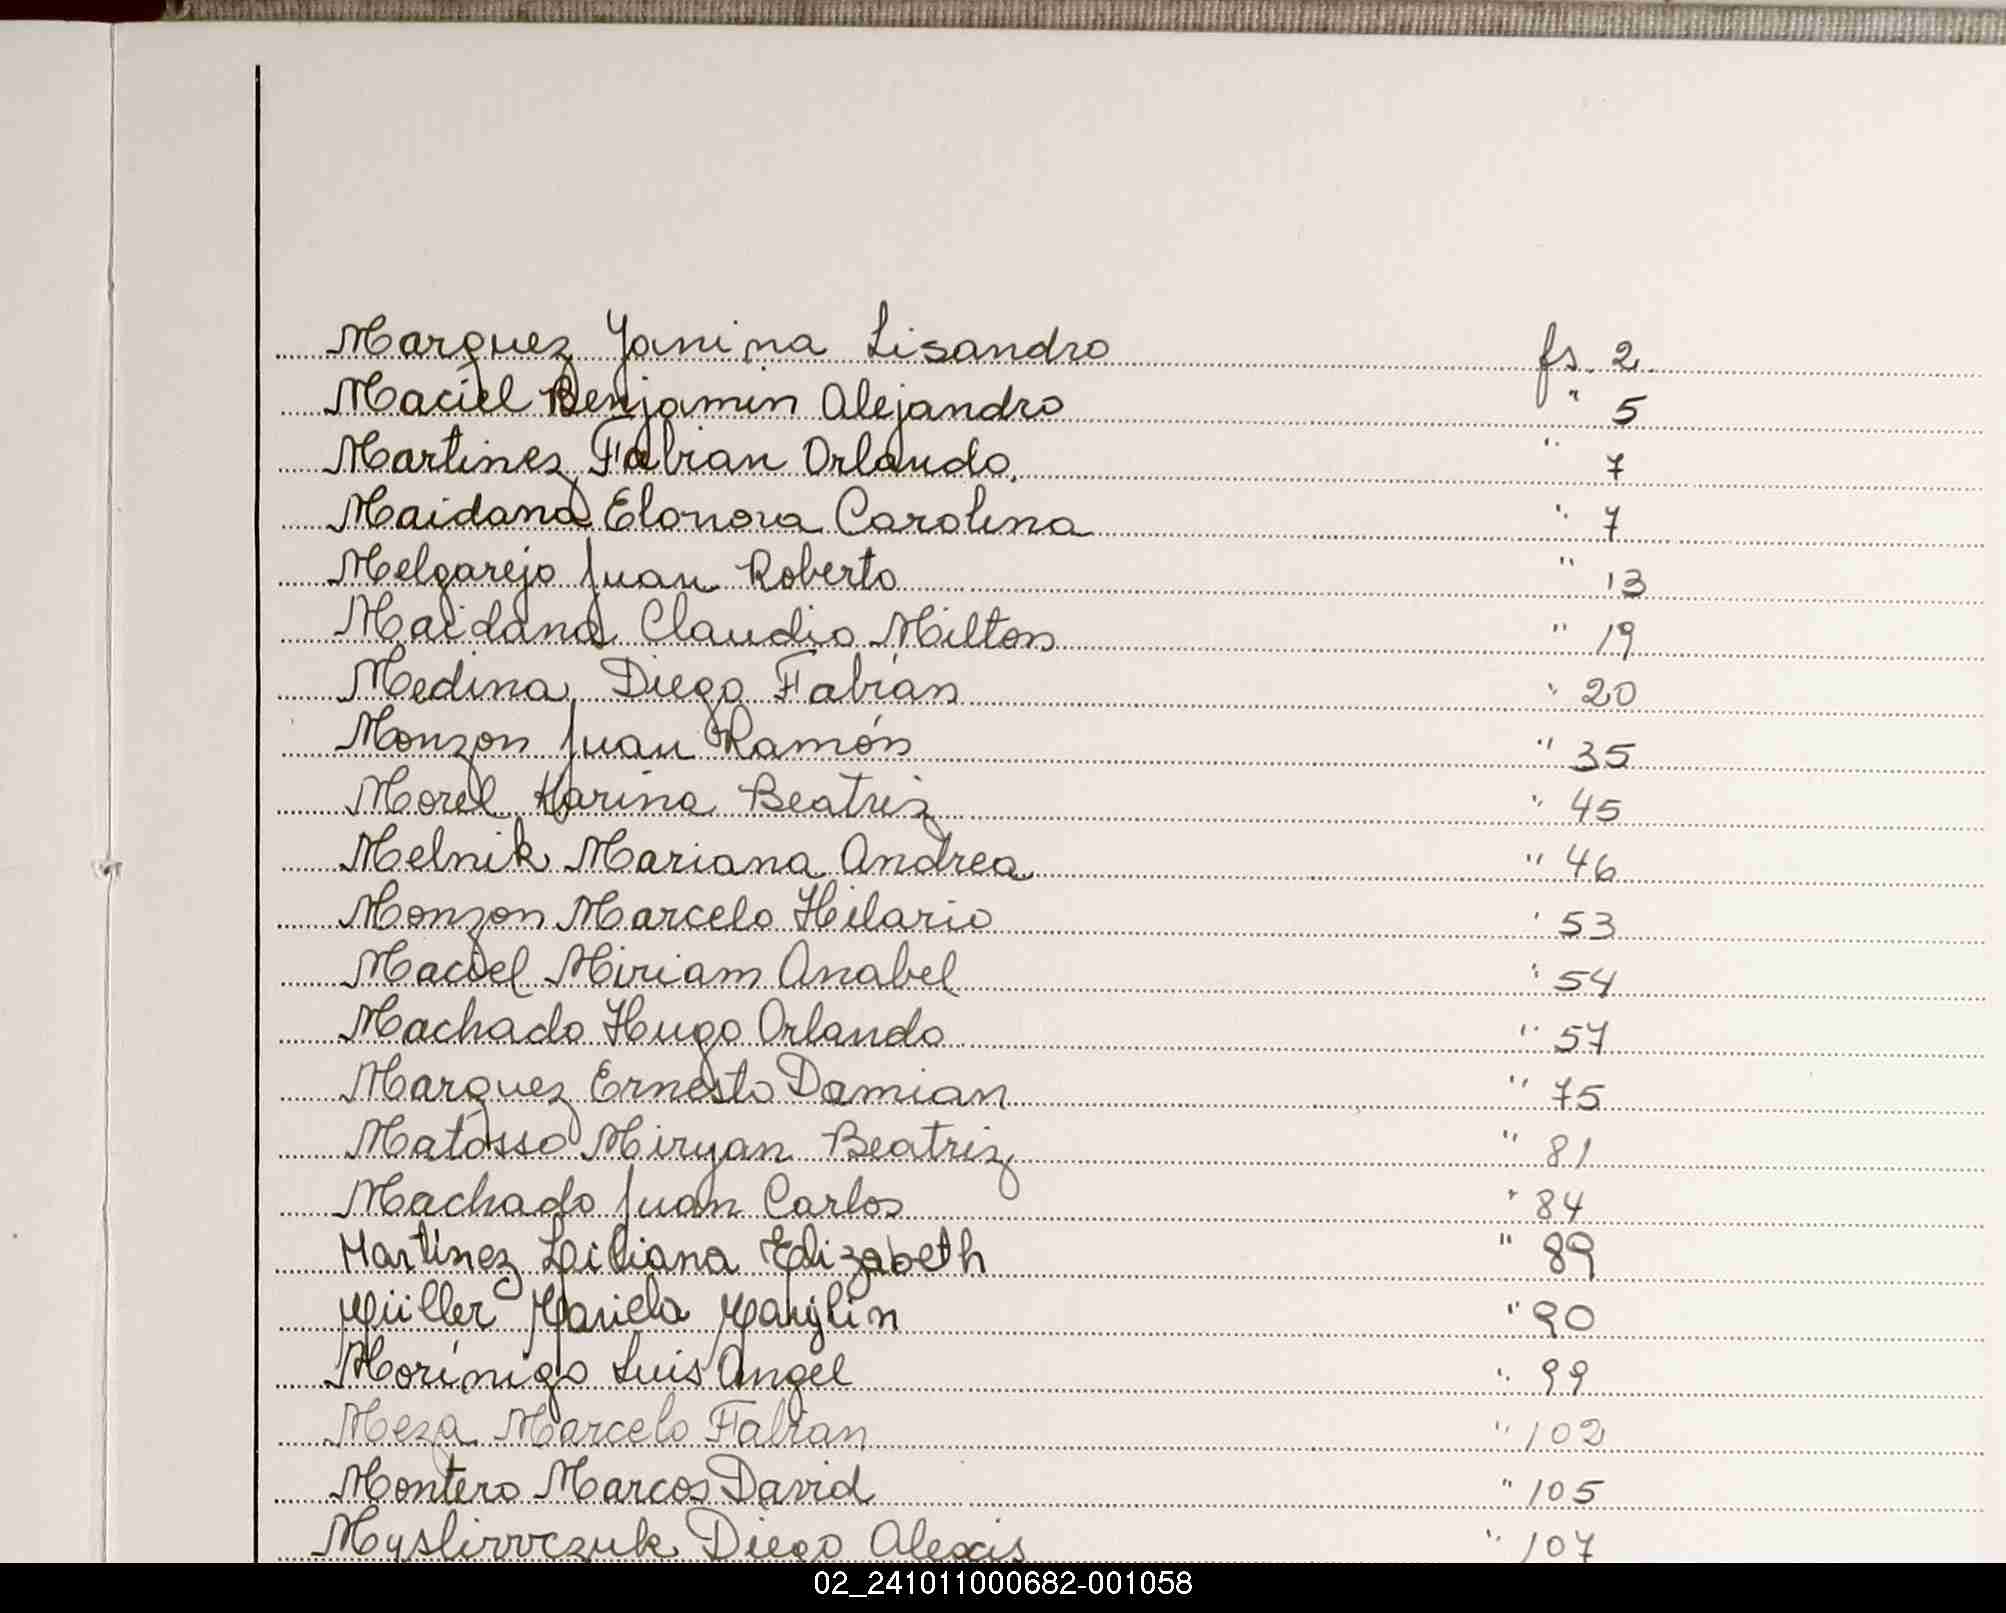 Marquez Yanina Lisandro fs. 2
Maciel Benjamin Alejandro " 5
Martinez Fabian Orlando. " 7
Maidana Elonora Carolina " 7
Melgarejo Juan Roberto " 13
Maidana Claudio Milton " 19
Medina Diego Fabián " 20
Monzon Juan Ramón " 35
Morel Karina Beatriz " 45
Melnik Mariana Andrea " 46
Monzon Marcelo Hilario " 53
Maciel Miriam Anabel " 54
Machado Hugo Orlando " 57
Marquez Ernesto Damian " 75
Matosso Miryan Beatriz " 81
Machado Juan Carlos " 84
Martínez Liliana Elizabeth " 89
Müller Mariela Marylin " 90
Morínigo Luis Angel " 99
Meza Marcelo Fabian " 102
Montero Marcos David " 105
Mysliwczuk Diego Alexis " 107
02_241011000682-001058